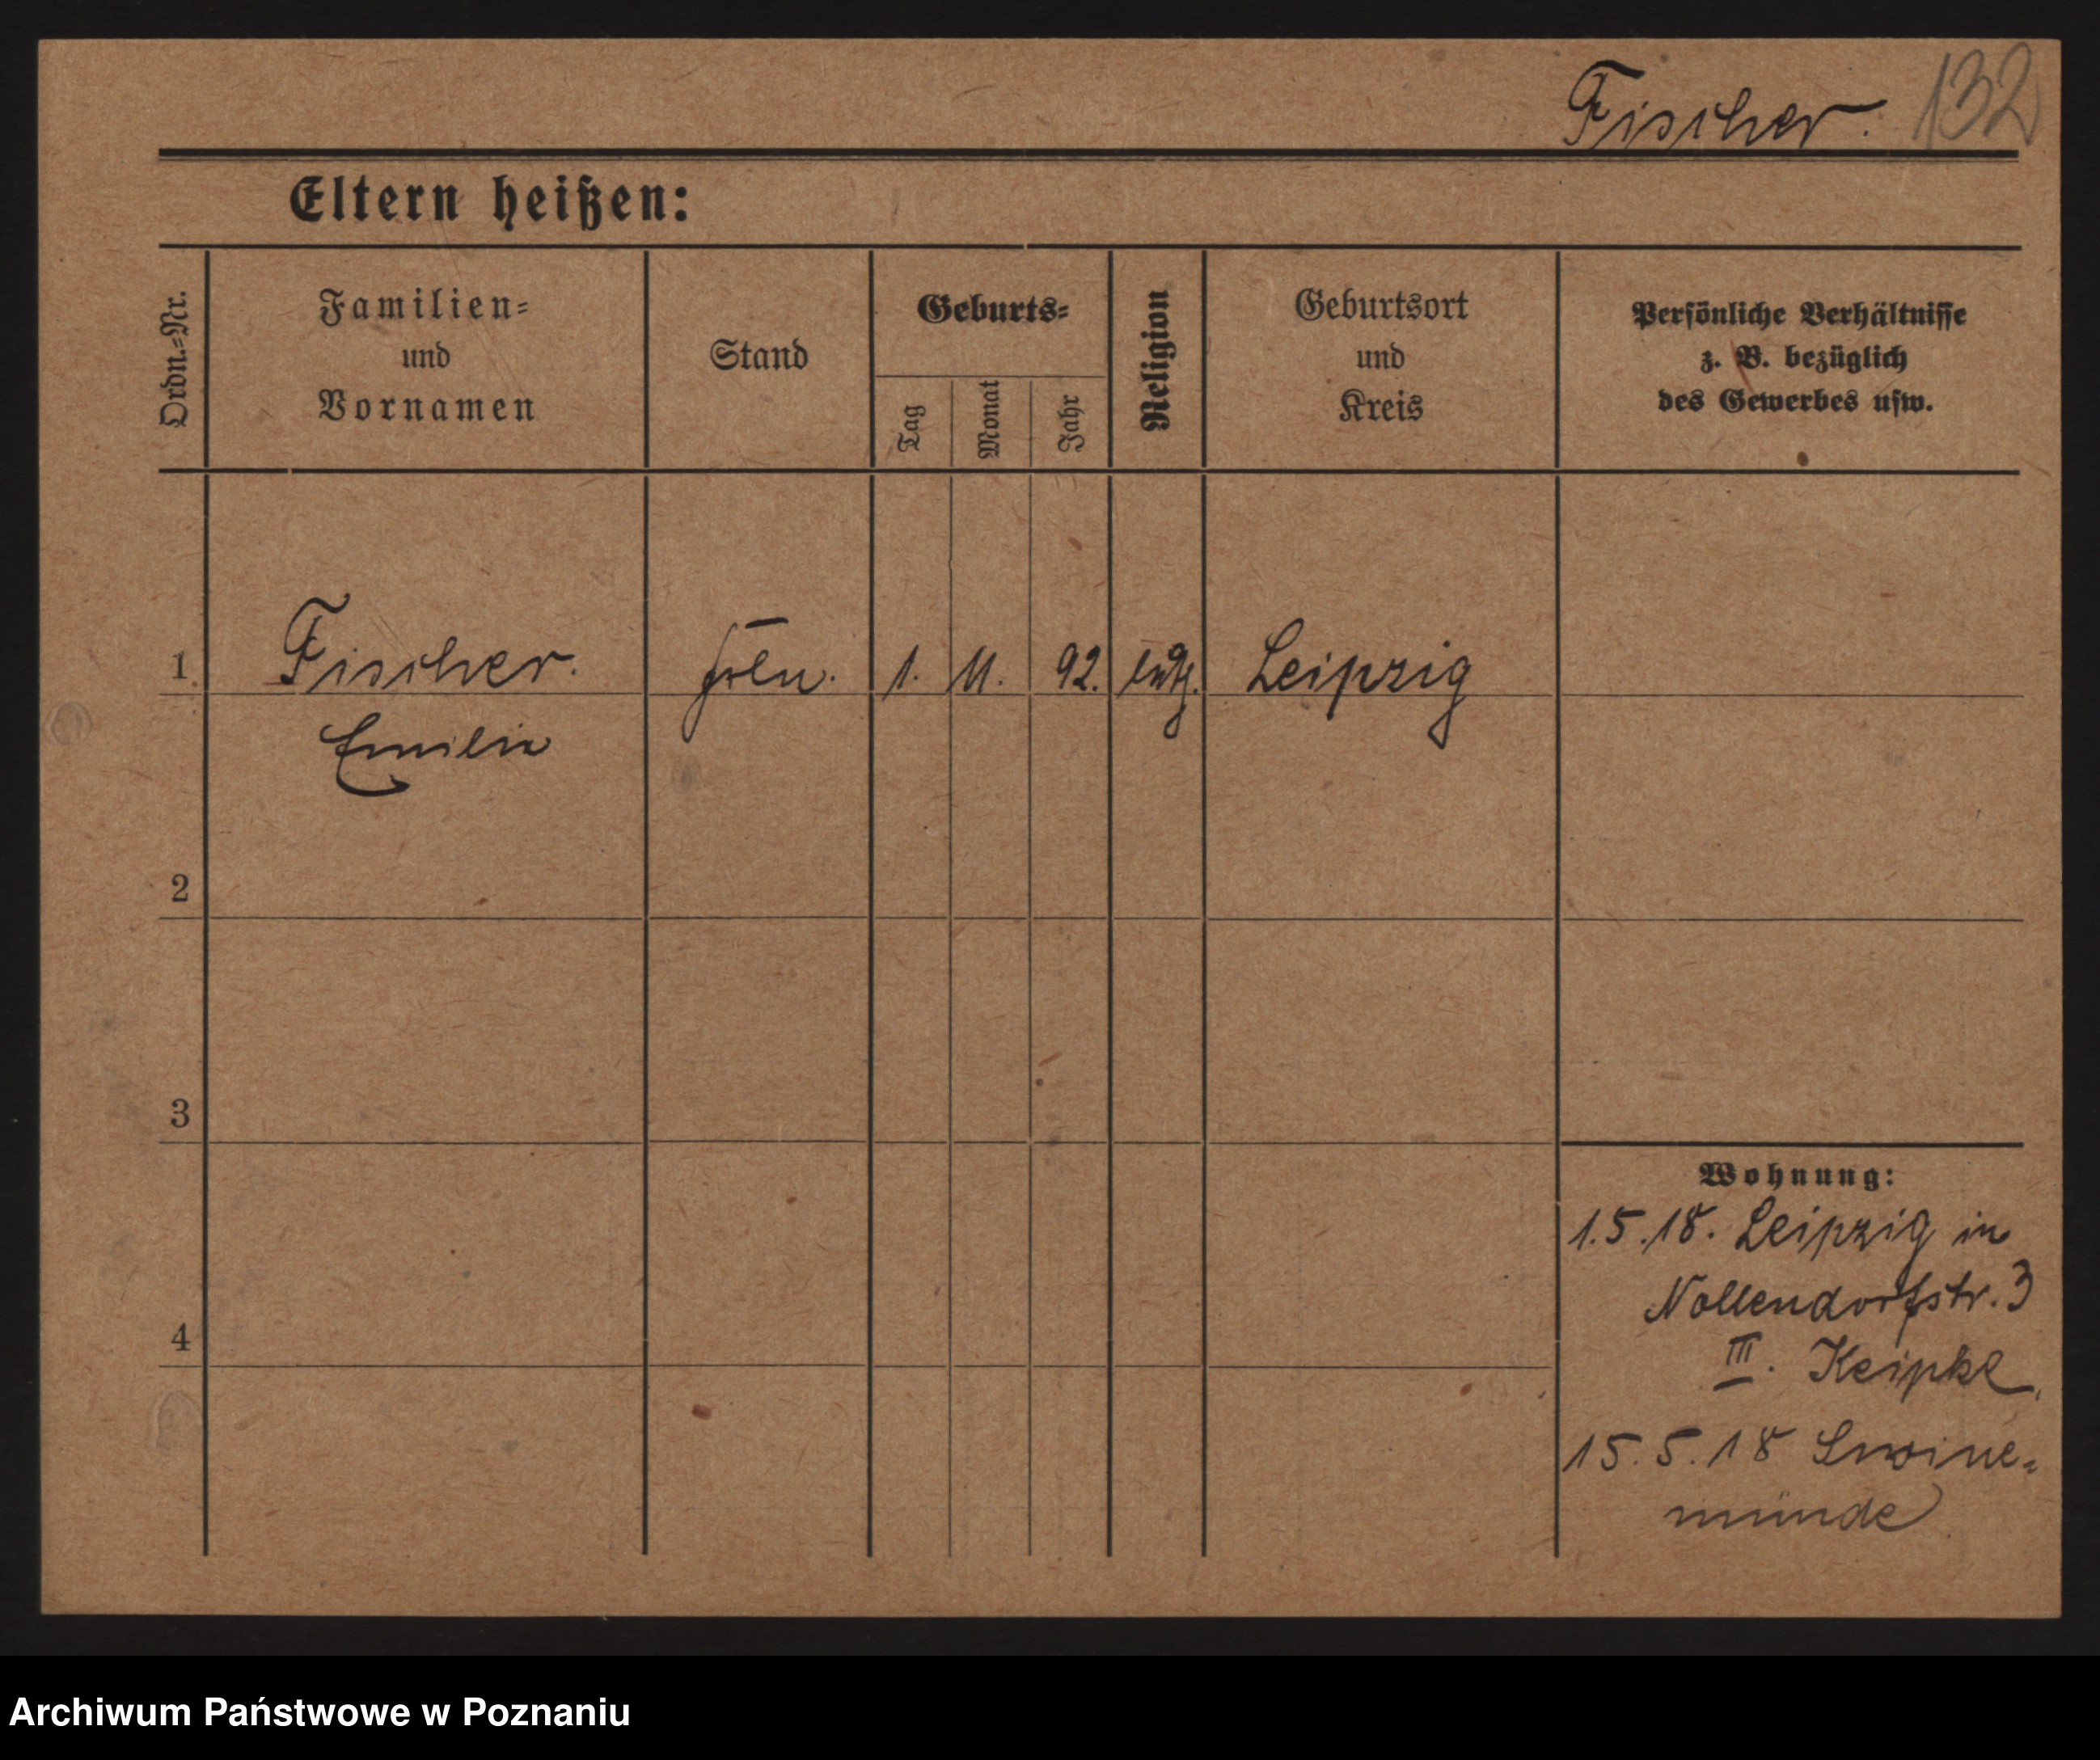 Fischer. 132
Eltern heißen:
Ordn.-Nr.
Familien-
und
Vornamen
Stand
Geburts-
Tag
Monat
Jahr
Religion
Geburtsort
und
Kreis
Persönliche Verhältnisse
z. B. bezüglich
des Gewerbes usw.
1 Fischer. 1. 11. 92. Leipzig
Emilie
2
3
4
Wohnung:
1.5.18. Leipzig in
Nollendorfstr. 3
III. Keipke
15.5.18 Swine-
münde
Archiwum Państwowe w Poznaniu